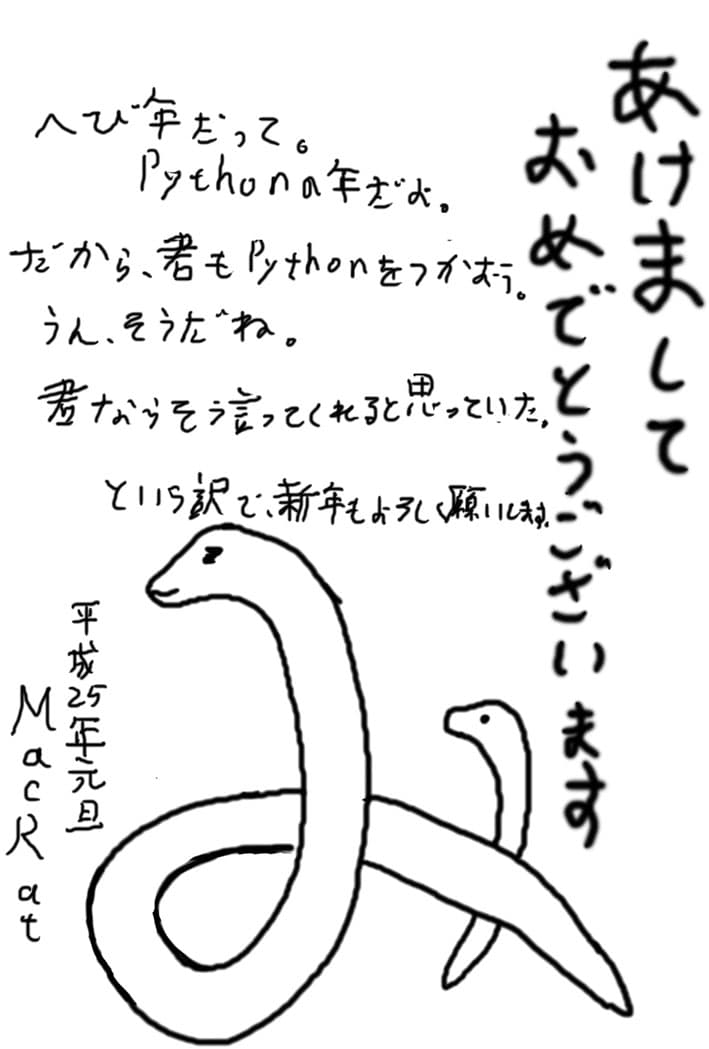 あけまして
おめでとうございます
へび年だって。
Pythonの年だよ。
だから、君もPythonをつかおう。
うん、そうだね。
君ならそう言ってくれると思っていた。
という訳で、新年もよろしく願いします。
平成25年元旦
MacRat